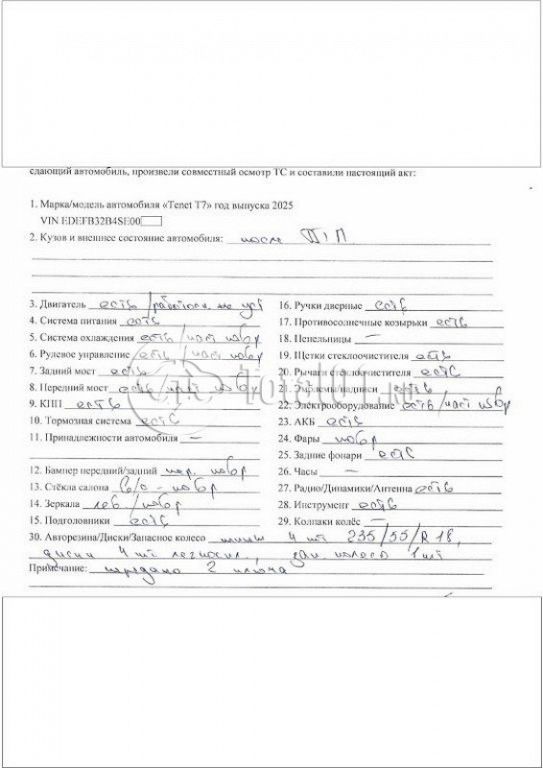 сдающий автомобиль, произвели совместный осмотр ТС и составили настоящий акт:
1. Марка/модель автомобиля «Tenet T7» год выпуска 2025
VIN EDEFB32B4SE00
2. Кузов и внешнее состояние автомобиля: после ДТП
3. Двигатель есть /работосп. не уст
4. Система питания есть
5. Система охлаждения есть /част повр
6. Рулевое управление есть, /част повр
7. Задний мост есть
8. Передний мост есть /част повр
9. КПП есть
10. Тормозная система есть
11. Принадлежности автомобиля –
12. Бампер передний/задний пер. повр
13. Стёкла салона б/о - повр
14. Зеркала лев /повр
15. Подголовники есть
16. Ручки дверные есть
17. Противосолнечные козырьки есть
18. Пепельницы –
19. Щетки стеклоочистителя есть
20. Рычаги стеклоочистителя есть
21. Эмблемы/надписи есть
22. Электрооборудование есть /част повр
23. АКБ есть
24. Фары повр
25. Задние фонари есть
26. Часы –
27. Радио/Динамики/Антенна есть
28. Инструмент есть
29. Колпаки колёс –
30. Авторезина/Диски/Запасное колесо шины 4 шт 235/55/R 18,
диски 4 шт легкоспл, зап. колесо 1 шт
Примечание: передано 2 ключа